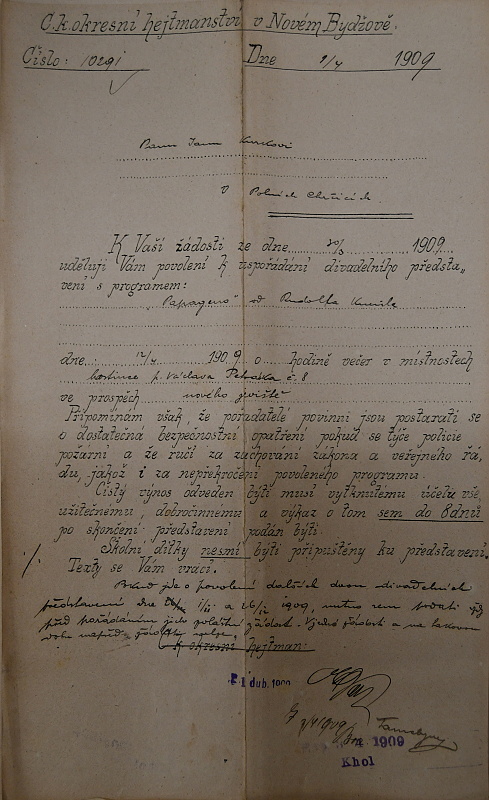 C.k. okresní hejtmanství v Novém Bydžově.
Číslo: 10291
Dne 9/4 1909
Panu Janu
v Polních Chrčicích.
K Vaší žádosti ze dne 30/3 1909.
uděluji Vám povolení k uspořádání divadelního předsta„
vení s programem:
„Papageno" od Rudolfa Kneisla
dne 12/4 1909 o hodině večer v místnostech
hostince p. Václava Petráska č. 8
ve prospěch nového jeviště
Připomínám však, že pořadatelé povinni jsou postarati se
o dostatečná bezpečnostní opatření pokud se týče policie
požární a že ručí za zachování zákona a veřejného řá,
du, jakož i za nepřekročení povoleného programu.
Čistý výnos odveden býti musí vytknutému účelu vše,
užitečnému, dobročinnému a výkaz o tom sem do 8 dnů
po skončení představení podán býti.
Školní dítky nesmí býti připuštěny ku představení.
Texty se Vám vrací.
Pokud jde o povolení dalších dvou divadelních
představení dne a 26/12 1909, nutno sem podati
před pořádáním jeho zvláštní žádost.
C.k. okresní hejtman:
dub.
1909
Khol